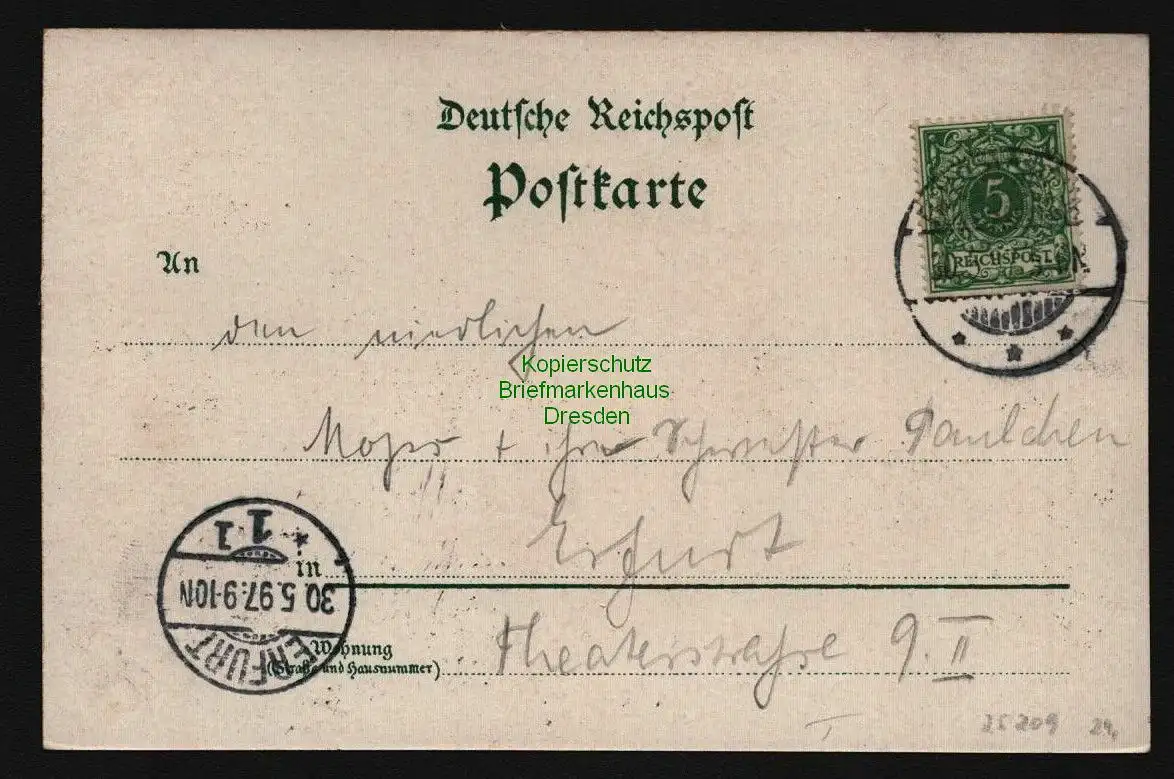 Deutsche Reichspost
Postkarte
An
5
REICHSPOST
den niedlichen
Kopierschutz
Briefmarkenhaus
Dresden
+ ihre Schwester Paulchen
Erfurt
in
ERFURT
30.5.97.9-10N
1 1
Wohnung
(Straße und Hausnummer)
Theaterstraße 9. II
25209 24,